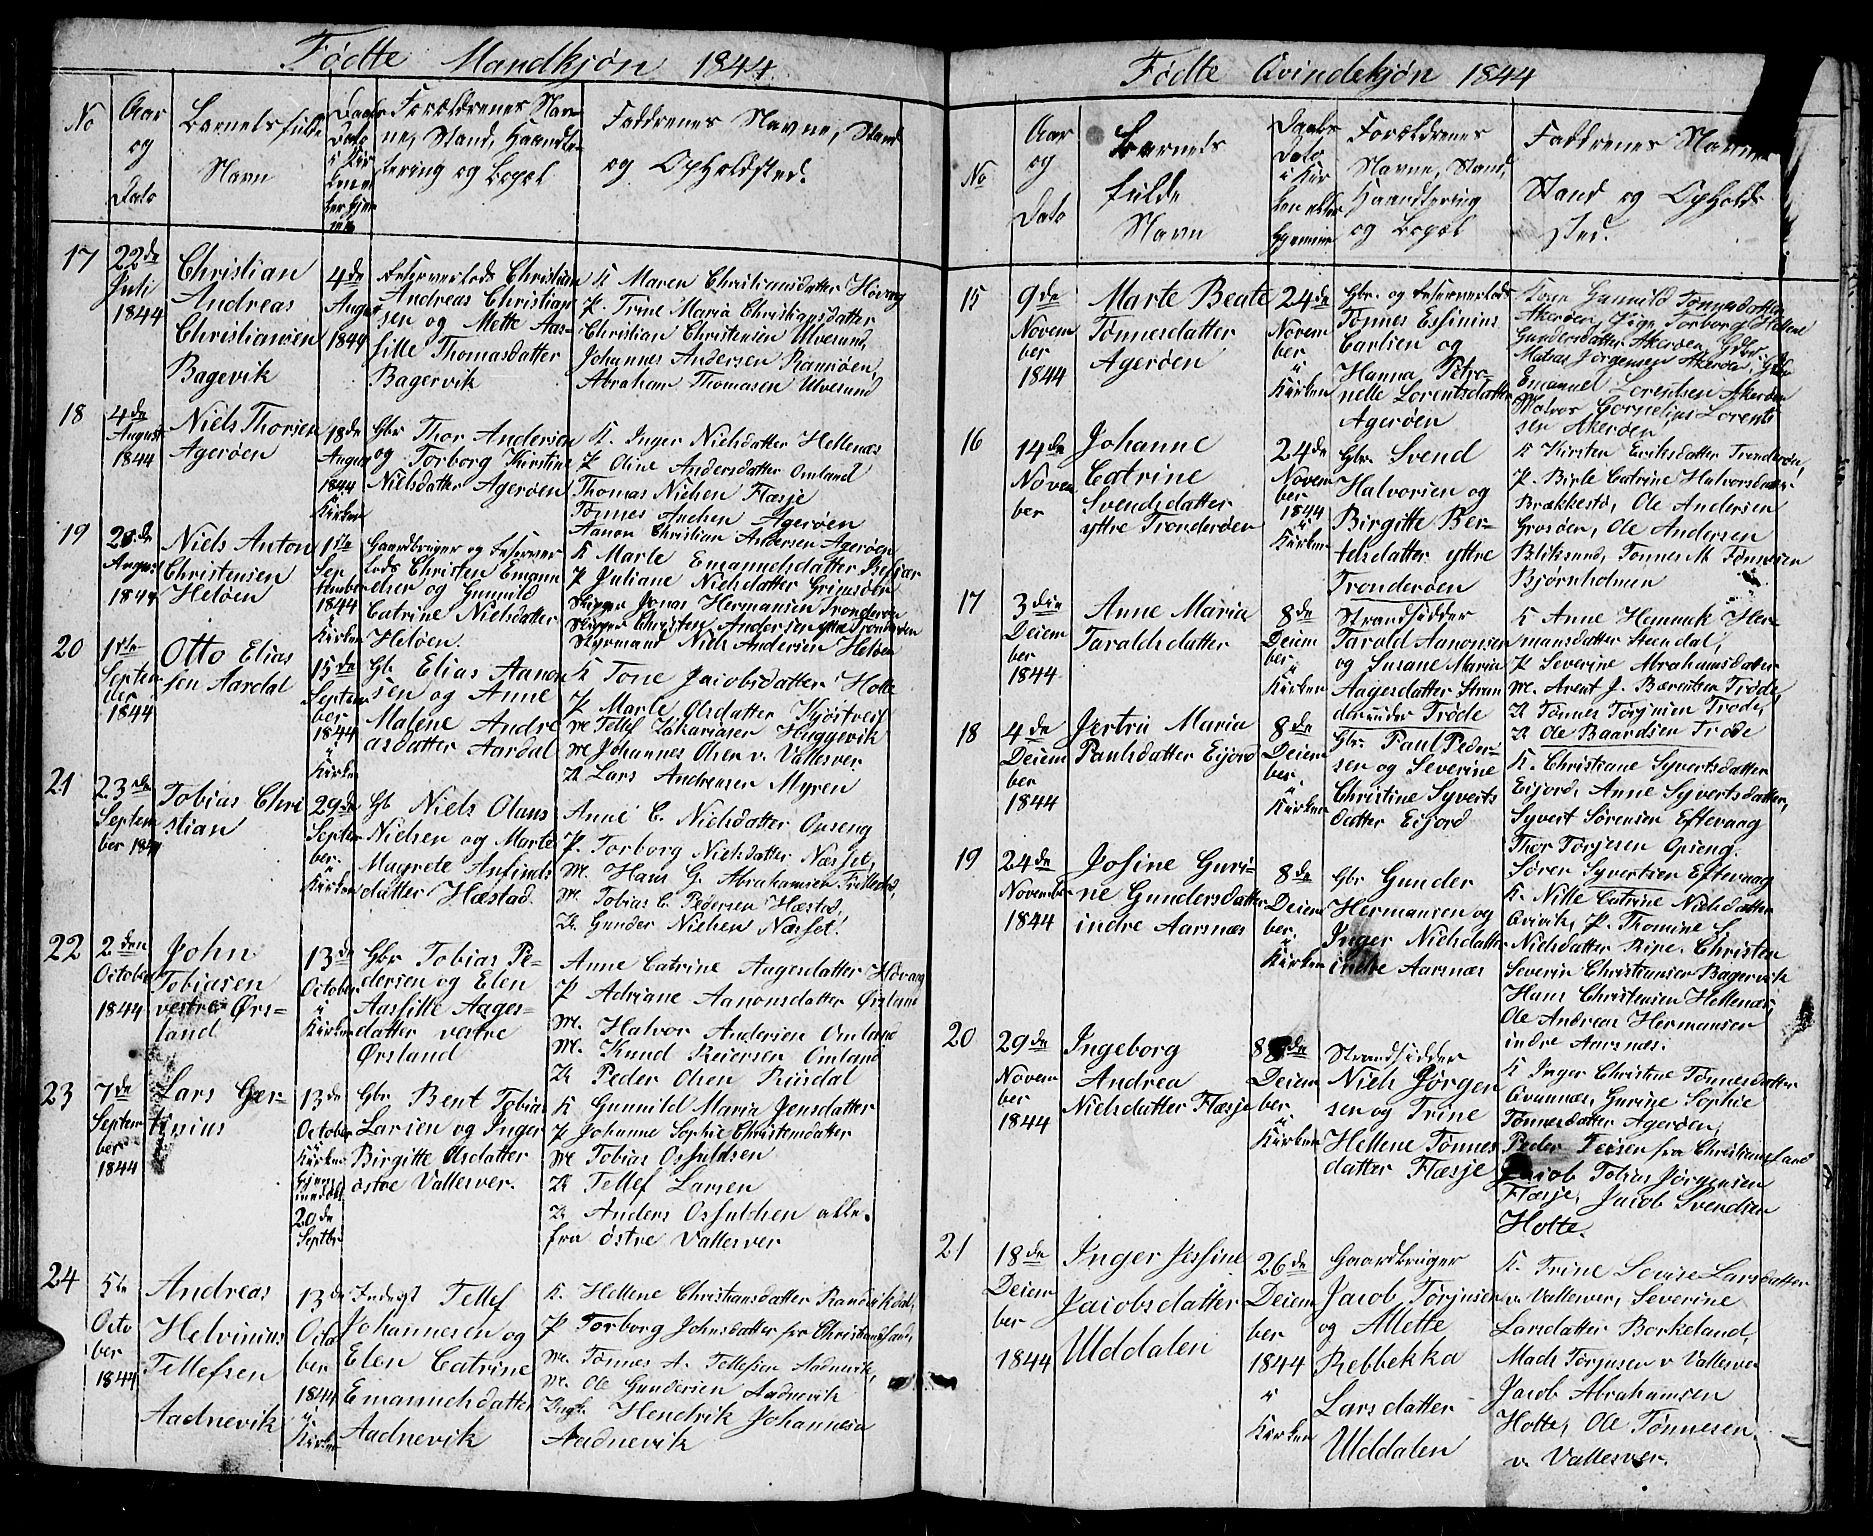 Födte Mandkjøn 1844
No
Aar og Dato
Barnets fulde Navn
Daabs Dato i Kirken eller hjemme
Forældrenes Navne, Stand, Haandtering og Bopæl
Faddrenes Navne, Stand og Opholdsted.
17
22de Juli 1844
Christian
Andreas
Christiansen
Bagevik
4de August 1844
Reserverlods Christian
Andreas Christian
sen og Mette Aas-
sille Thomasdatter
Bagervik
K Maren Christiansdatter Høvaag
P. Trine Maria Christiansdatter
Christian Christensen Ulvesund
Johannes Andersen Ramsøen,
Abraham Thomasen Ulvesund
18
4de August 1844
Niels Thorsen
Agerøen
18de August 1844 Kirken
Gbr Thor Andersen
og Torborg Kirstine
Nielsdatter Agerøen
K. Inger Nielsdatter Hellenæs
P Oline Andersdatter Omland
Thomas Nielsen Flæsje
Tönnes Anchen Agerøen
Aanon Christian Andersen Agerøen
19
August 1844
Niels Anton
Christensen
Heløen
1ste September 1844 Kirken
Gaardbruger og Reserver
lods Christen Emanu
elsen og Gunnild
Catrine Nielsdatter
Heløen.
K Marte Emanuelsdatter
P Juliane Nielsdatter Grimsøen
Skipper Jonas Hermansen Tronderøen
Skipper Christen Andersen ytre Tronderøen
Styrmand Niels Andersen Heløen
20
1ste September 1844
Otto Elias
sen Aardal
15de September 1844 i Kirken
Gb Elias Aanon
sen og Anne
Malene Andre
asdatter Aardal
K Tone Jacobsdatter Holte
P Marte Olsdatter Kjøstveit
M Tellef Zakariasen Huggevik
M Johannes Olsen v. Vallesver
K Lars Andreasen Myren
21
23de September 1844
Tobias Chri
stian
29de September i Kirken
Gb Niels Olaus
Nielsen og Marte
Magrete Asfinds
datter Hæstad.
Anne C. Nielsdatter Opseng
P. Torborg Nielsdatter Næsset,
M. Hans G. Abrahamsen
M. Tobias C. Pedersen Hæstad,
K. Gunder Nielsen Næsset.
22
2den October 1844
John
Tobiasen
vestre Ørs-
land
13de October i Kirken
Gbr Tobias Pe-
dersen og Elen
Aassille Aages-
datter vestre
Ørsland
Anne Catrine Augensdatter Høvaag
P Adriane Aanonsdatter Ørsland
M. Halvor Andersen Omland
M. Knud Reiersen Omland
K Peder Olsen Riisdal
23
7de September 1844
Lars Ger-
tinius
13de October i Kirken
20de Septbr
Gbr Bent Tobias
Larsen og Inger
Birgitte Olsdatter
östre Vallesver.
K Gunnild Maria Jensdatter
P Johanne Sophie Christensdatter
M Tobias Osfuldsen
K Tellef Larsen
K Anders Osfuldsen alle
fra östre Vallesver
24
5te October 1844
Andreas
Helvinius
Tellefsen
Aadnevik
13de October 1844 i Kirken
Inderst Tellef
Johannesen og
Elen Catrine
Emanuelsdatter
Aadnevik
K. Hellene Christiansdatter Randviksdal,
P Torborg Johnsdatter fra Christiansand,
M. Tönnes A. Tellefsen Aadnevik,
M. Ole Gundersen Aadnevik
Ungk. Hendrik Johannesen
Aadnevik
Födte Qvindekjøn 1844
No
Aar og Dato
Barnets fulde Navn
Daabs Dato i Kirken eller hjemme
Forældrenes Navne, Stand, Haandtering og Bopæl
Faddrenes Navne Stand og Opholds Sted.
15
9de November 1844
Marte Beate
Tönnesdatter
Agerøen
24de November i Kirken
Gbr. og Reserverlods
Tönnes Essinius
Carlsen og
Hanna Petro-
nelle Lorentsdatter
Agerøen
Kone Gunnild Tönnesdatter
Akerøen, Pige Torborg Hellene
Gundersdatter Akerøen, Gbr.
Matias Jörgensen Akerøen,
Emanuel Lorentsen Akerøen
Matros Cornelius Lorent
sen Akerøen
16
14de November
Johanne
Catrine
Svendsdatter
ytre Tronderøen
24de November 1844 i Kirken
Gbr. Svend
Halvorsen og
Birgitte Ber-
telsdatter ytre
Tronderøen
K Kirsten Eriksdatter Tronderøen,
P. Birte Catrine Halvorsdatter
Brækkestø, Ole Andersen
Grosøen, Ole Andersen
Bliksund, Tönnes M. Tønnesen
Bjørnholmen
17
3die Decem ber 1844
Anne Maria
Taraldsdatter
8de December i Kirken
Strandsidder
Tarald Aanonsen
og Susane Maria
Aagesdatter Stran
den under Trøde
K Anne Her-
mansdatter Stendal,
P Severine Abrahamsdatter
M. Arent J. Bærentsen Trøde,
K Tönnes Törjusen Trøde,
K Ole Baardsen Trøde
18
4de December 1844
Jertru Maria
Paulsdatter Eijord
8de December i Kirken
Gbr. Paul Peder-
sen og Severine
Christine Syverts
datter Eijord
K. Christiane Syvertsdatter
Eijord, Anne Syvertsdatter,
Syvert Sörensen Eftevaag
Thor Torjesen Opseng
Sören Syvertsen Eftevaag
19
24de November 1844
Josine Guri-
ne Gundersdatter
indre Aarsnæs
8de December i Kirken
Gbr Gunder
Hermansen og
Inger Nielsdatter
indre Aarsnæs
K. Nille Catrine Nielsdatter
Qvivik, P. Thomine S.
Nielsdatter Ripe, Christen
Severin Christiansen Bagervik
Hans Christensen Hellenæs,
Ole Andreas Hermansen
indre Aarsnæs.
20
29de November 1844
Ingeborg
Andrea
Nielsdatter Flæsje
8de December i Kirken
Strandsidder
Niels Jørgen
sen og Trine
Hellene Tönnes
datter Flæsje
K Inger Christine Tönnesdatter
Qvannæs, Gurine Sophie
Tönnesdatter Agerøen,
Peder fra Christiansand
Jacob Tobias Jørgensen
Flæsje, Jacob Svendsen
Holte.
21
18de December 1844
Inger Jesine
Jacobsdatter
Ulddalen
26de December 1844 i Kirken
Gaardbruger
Jacob Torjusen
og Mette
Rebbekka
Larsdatter
Ulddalen
K. Trine Lovise Larsdatter
v. Vallesver, Severine
Larsdatter Borkeland,
Mads Torjusen v Vallesver
Jacob Abrahamsen
Holte, Ole Tönnesen
v. Vallesver.